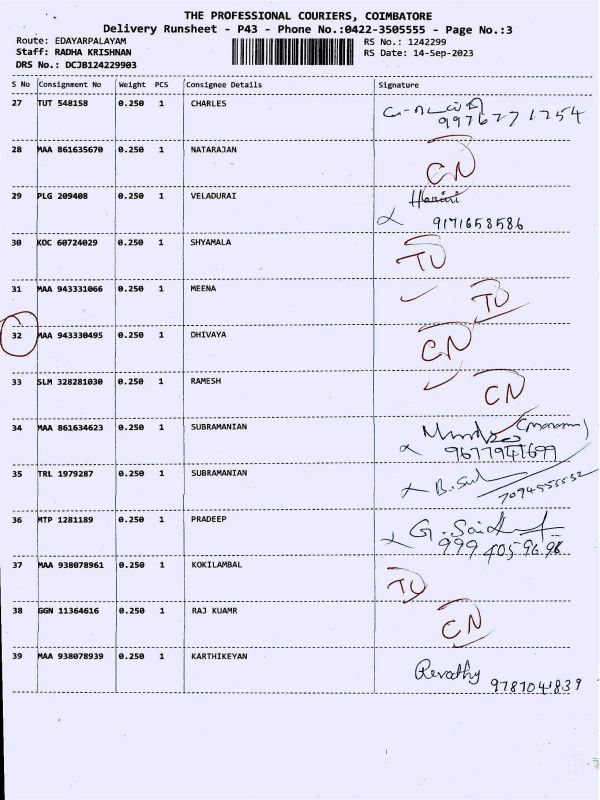 THE PROFESSIONAL COURIERS, COIMBATORE
Delivery Runsheet - P43 - Phone No.:0422-3505555 - Page No.:3
Route: EDAYARPALAYAM RS No.: 1242299
Staff: RADHA KRISHNAN RS Date: 14-Sep-2023
DRS No.: DCJB124229903
S No Consignment No Weight PCS Consignee Details Signature
27 TUT 548158 0.250 1 CHARLES
9976771754
28 MAA 861635670 0.250 1 NATARAJAN
CN
29 PLG 209408 0.250 1 VELADURAI Harini
9171658586
30 KOC 60724029 0.250 1 SHYAMALA
TU
31 MAA 943331066 0.250 1 MEENA
TU
32 MAA 943330495 0.250 1 DHIVAYA
CN
33 SLM 328281030 0.250 1 RAMESH
CN
34 MAA 861634623 0.250 1 SUBRAMANIAN
9677941699
35 TRL 1979287 0.250 1 SUBRAMANIAN
7094555532
36 MTP 1281189 0.250 1 PRADEEP
999 4059698
37 MAA 938078961 0.250 1 KOKILAMBAL
TU
38 GGN 11364616 0.250 1 RAJ KUAMR
CN
39 MAA 938078939 0.250 1 KARTHIKEYAN
Revathy 9787041839